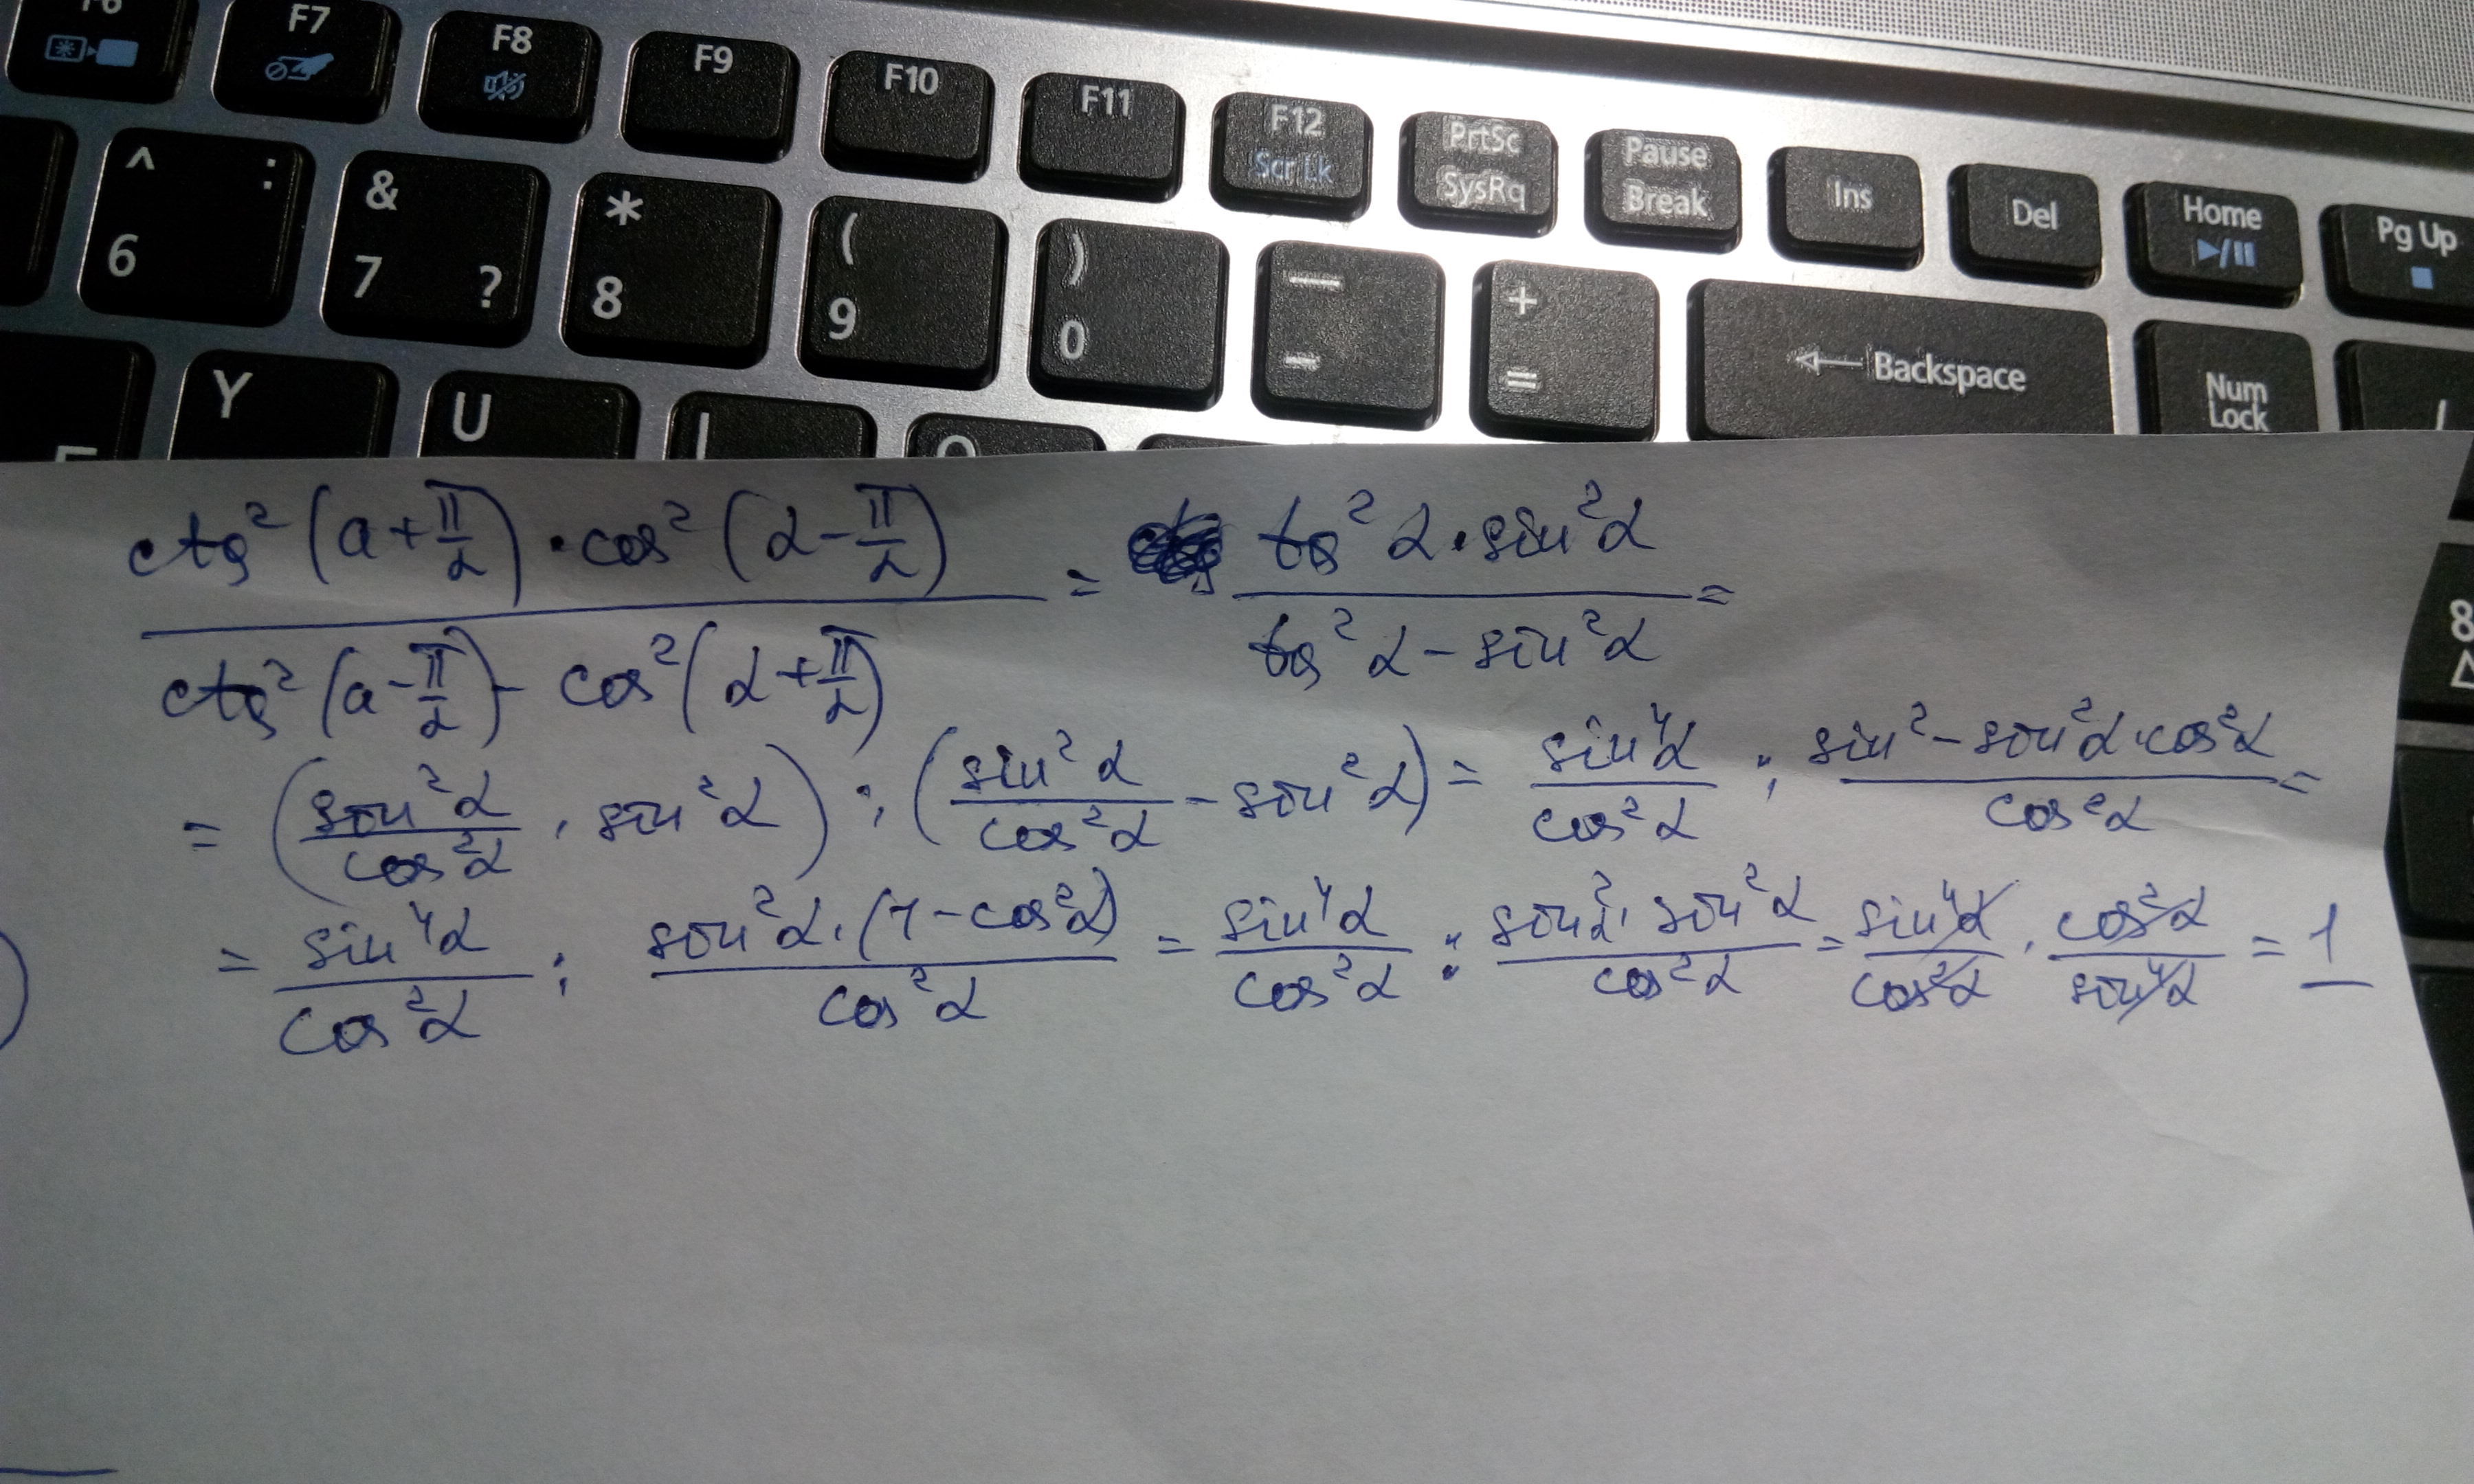 F6 F7 F8 F9 F10 F11 F12 PrtSc Pause Ins Del Home Pg Up
Scr Lk SysRq Break
^ : & * ( ) — +
6 7 ? 8 9 0 - = Backspace Num Lock /
Y U I O
8
ctg²(a+π/2)·cos²(α-π/2) / ctg²(a-π/2) - cos²(α+π/2) = tg²α·sin²α / tg²α-sin²α =
= (sin²α/cos²α · sin²α) : (sin²α/cos²α - sin²α) = sin⁴α/cos²α : sin²-sin²α·cos²α / cos²α =
= sin⁴α/cos²α : sin²α·(1-cos²α) / cos²α = sin⁴α/cos²α : sin²α·sin²α / cos²α = sin⁴α/cos²α · cos²α/sin⁴α = 1